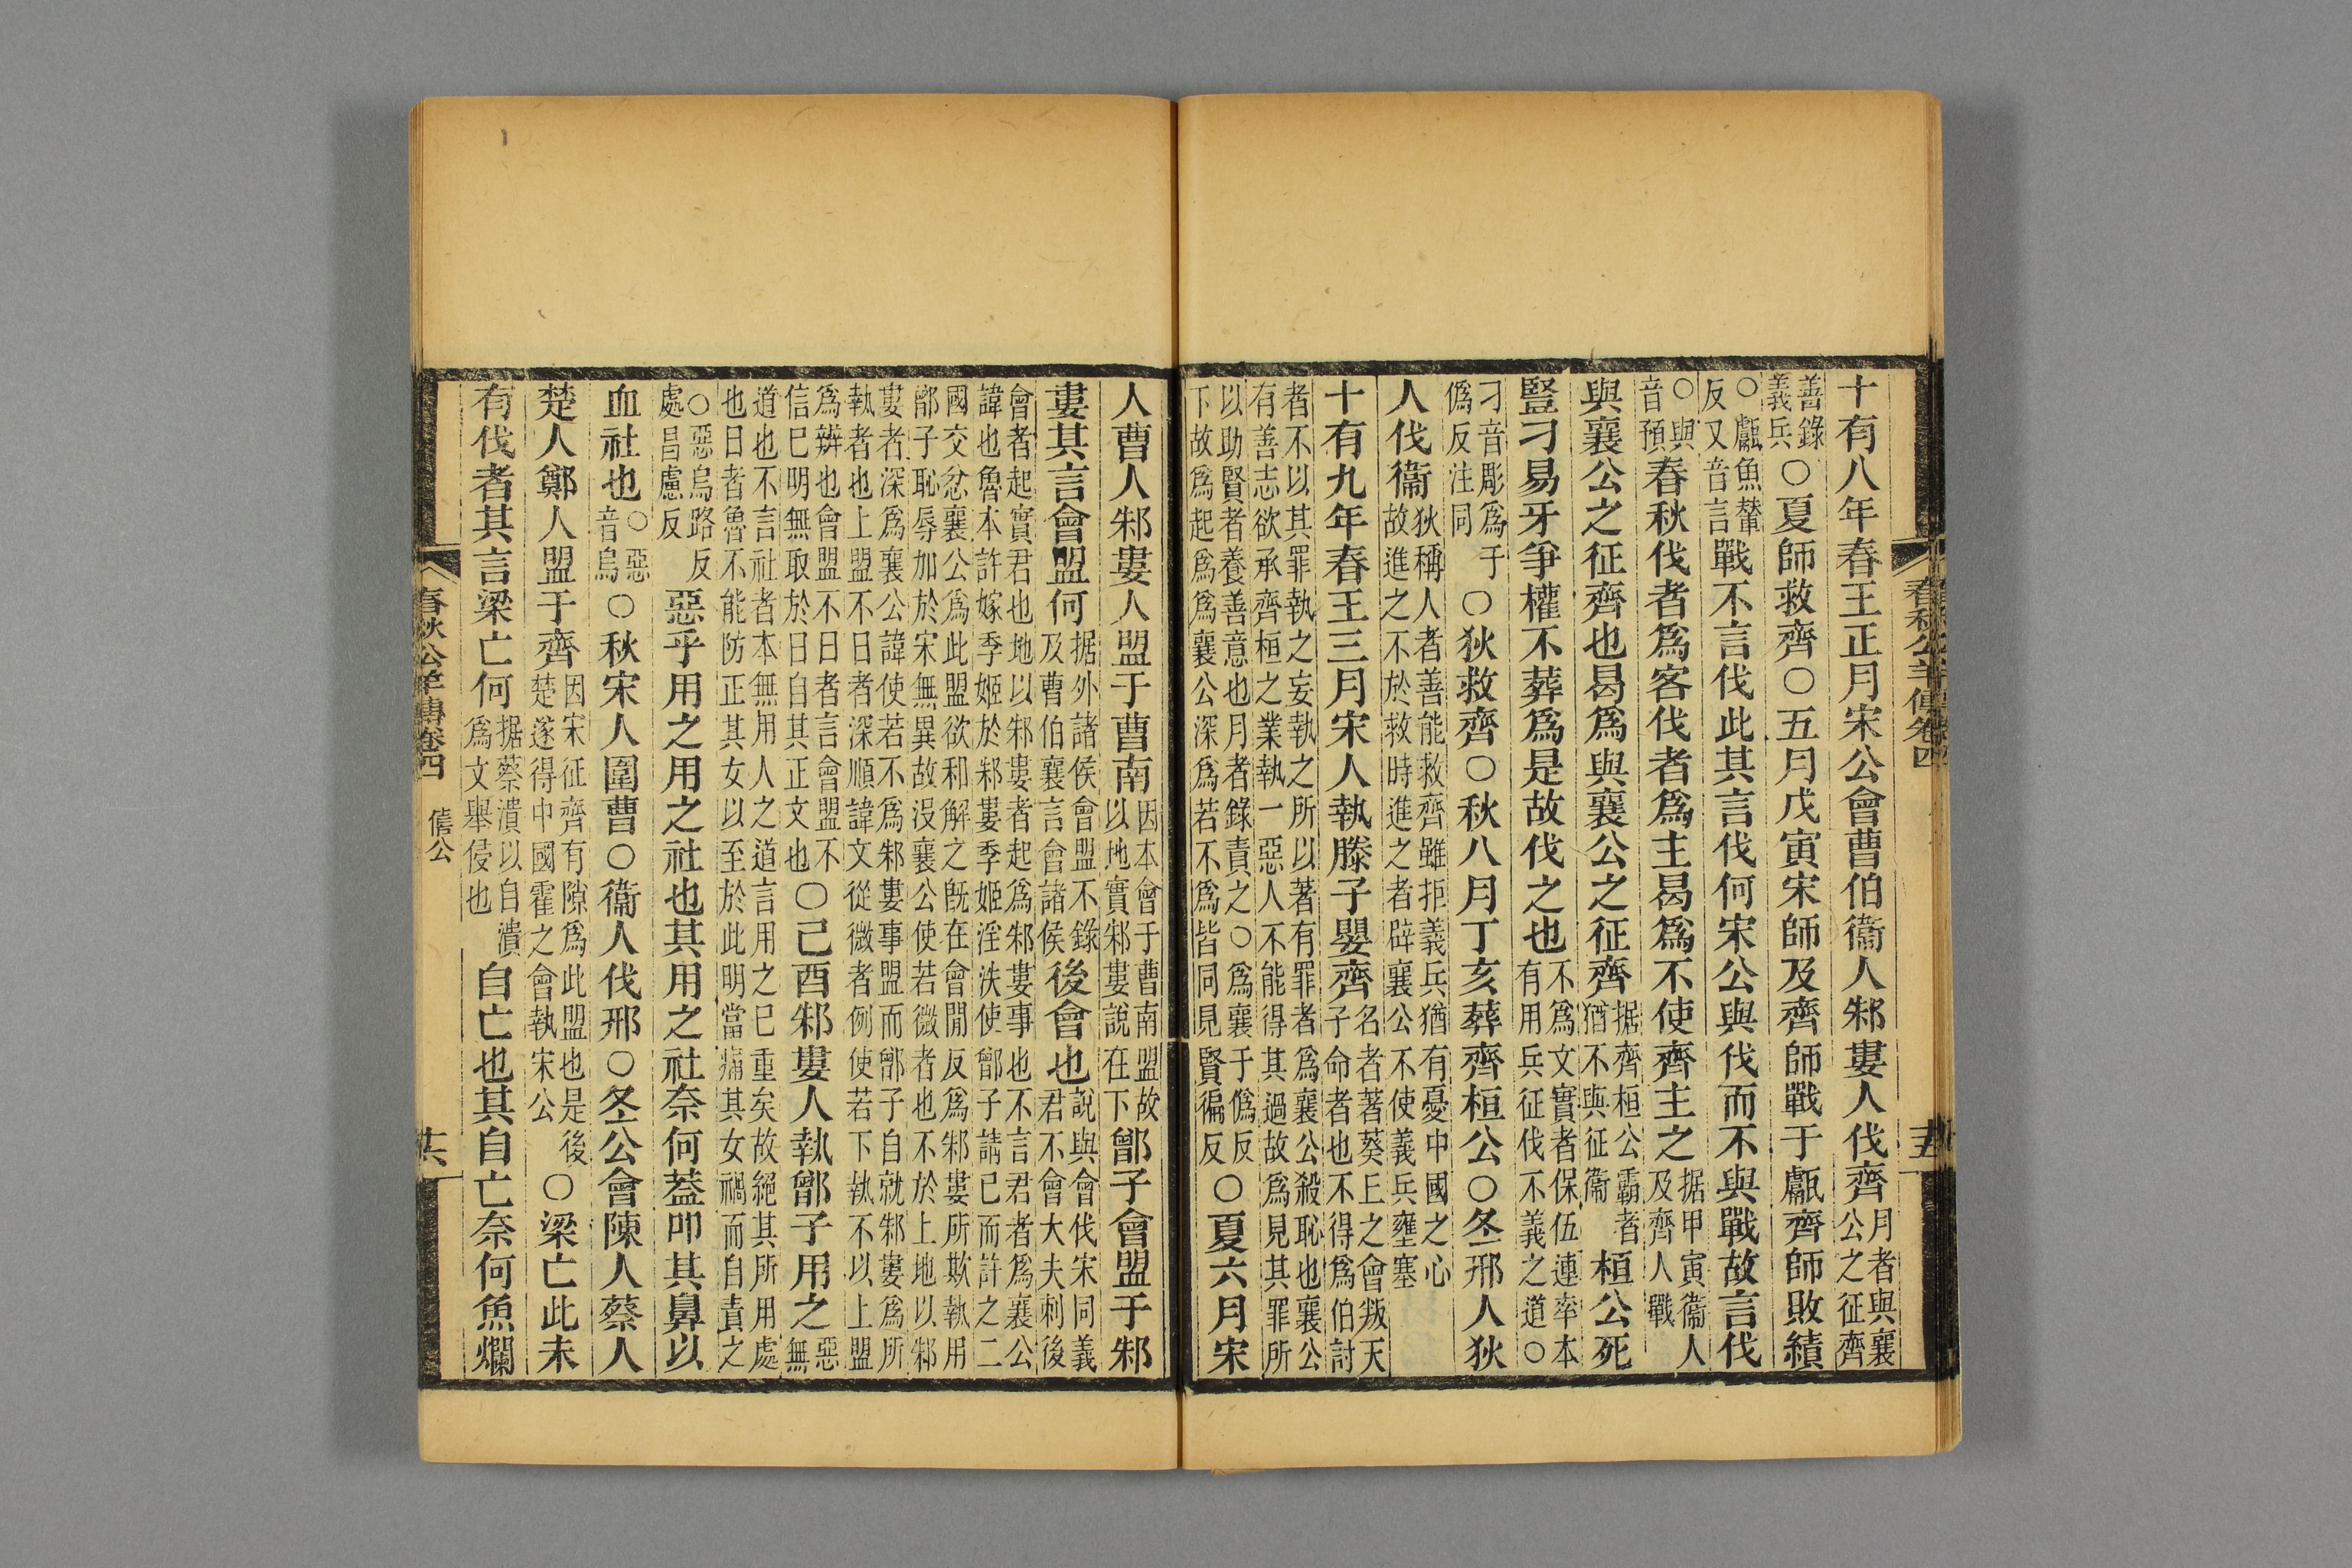 春秋公羊傳卷四
十有八年春王正月宋公會曹伯衞人邾婁人伐齊月者與襄公之征齊
善錄義兵○夏師救齊○五月戊寅宋師及齊師戰于甗齊師敗績
○甗魚輦反又音言戰不言伐此其言伐何宋公與伐而不與戰故言伐
○與音預春秋伐者爲客伐者爲主曷爲不使齊主之据甲寅衞人及齊人戰
與襄公之征齊也曷爲與襄公之征齊据齊桓公霸者猶不與征衞桓公死
豎刁易牙爭權不葬爲是故伐之也不爲文實者保伍連率本有用兵征伐不義之道○
刁音彫爲于僞反注同○狄救齊○秋八月丁亥葬齊桓公○冬邢人狄
人伐衞狄稱人者善能救齊雖拒義兵猶有憂中國之心故進之不於救時進之者辟襄公不使義兵壅塞
十有九年春王三月宋人執滕子嬰齊名者著葵丘之會叛天子命者也不得爲伯討
者不以其罪執之妄執之所以著有罪者爲襄公殺恥也襄公有善志欲承齊桓之業執一惡人不能得其過故爲見其罪所
以助賢者養善意也月者錄責之○爲襄于僞反下故爲起爲爲襄公深爲若不爲皆同見賢徧反○夏六月宋
人曹人邾婁人盟于曹南因本會于曹南盟故以地實邾婁說在下鄫子會盟于邾
婁其言會盟何据外諸侯會盟不錄及曹伯襄言會諸侯後會也說與會伐宋同義君不會大夫刺後
會者起實君也地以邾婁者起爲邾婁事也不言君者爲襄公諱也魯本許嫁季姬於邾婁季姬淫泆使鄫子請已而許之二
國交忿襄公爲此盟欲和解之旣在會閒反爲邾婁所欺執用鄫子恥辱加於宋無異故沒襄公使若微者也不於上地以邾
婁者深爲襄公諱使若不爲邾婁事盟而鄫子自就邾婁爲所執者也上盟不日者深順諱文從微者例使若下執不以上盟
爲辨也會盟不日者言會盟不信巳明無取於日自其正文也○己酉邾婁人執鄫子用之惡無
道也不言社者本無用人之道言用之已重矣故絕其所用處也日者魯不能防正其女以至於此明當痛其女禍而自責之
○惡烏路反處昌慮反惡乎用之用之社也其用之社奈何蓋叩其鼻以
血社也○惡音烏○秋宋人圍曹○衞人伐邢○冬公會陳人蔡人
楚人鄭人盟于齊因宋征齊有隙爲此盟也是後楚遂得中國霍之會執宋公○梁亡此未
有伐者其言梁亡何据蔡潰以自潰爲文舉侵也自亡也其自亡奈何魚爛
春秋公羊傳卷四 僖公